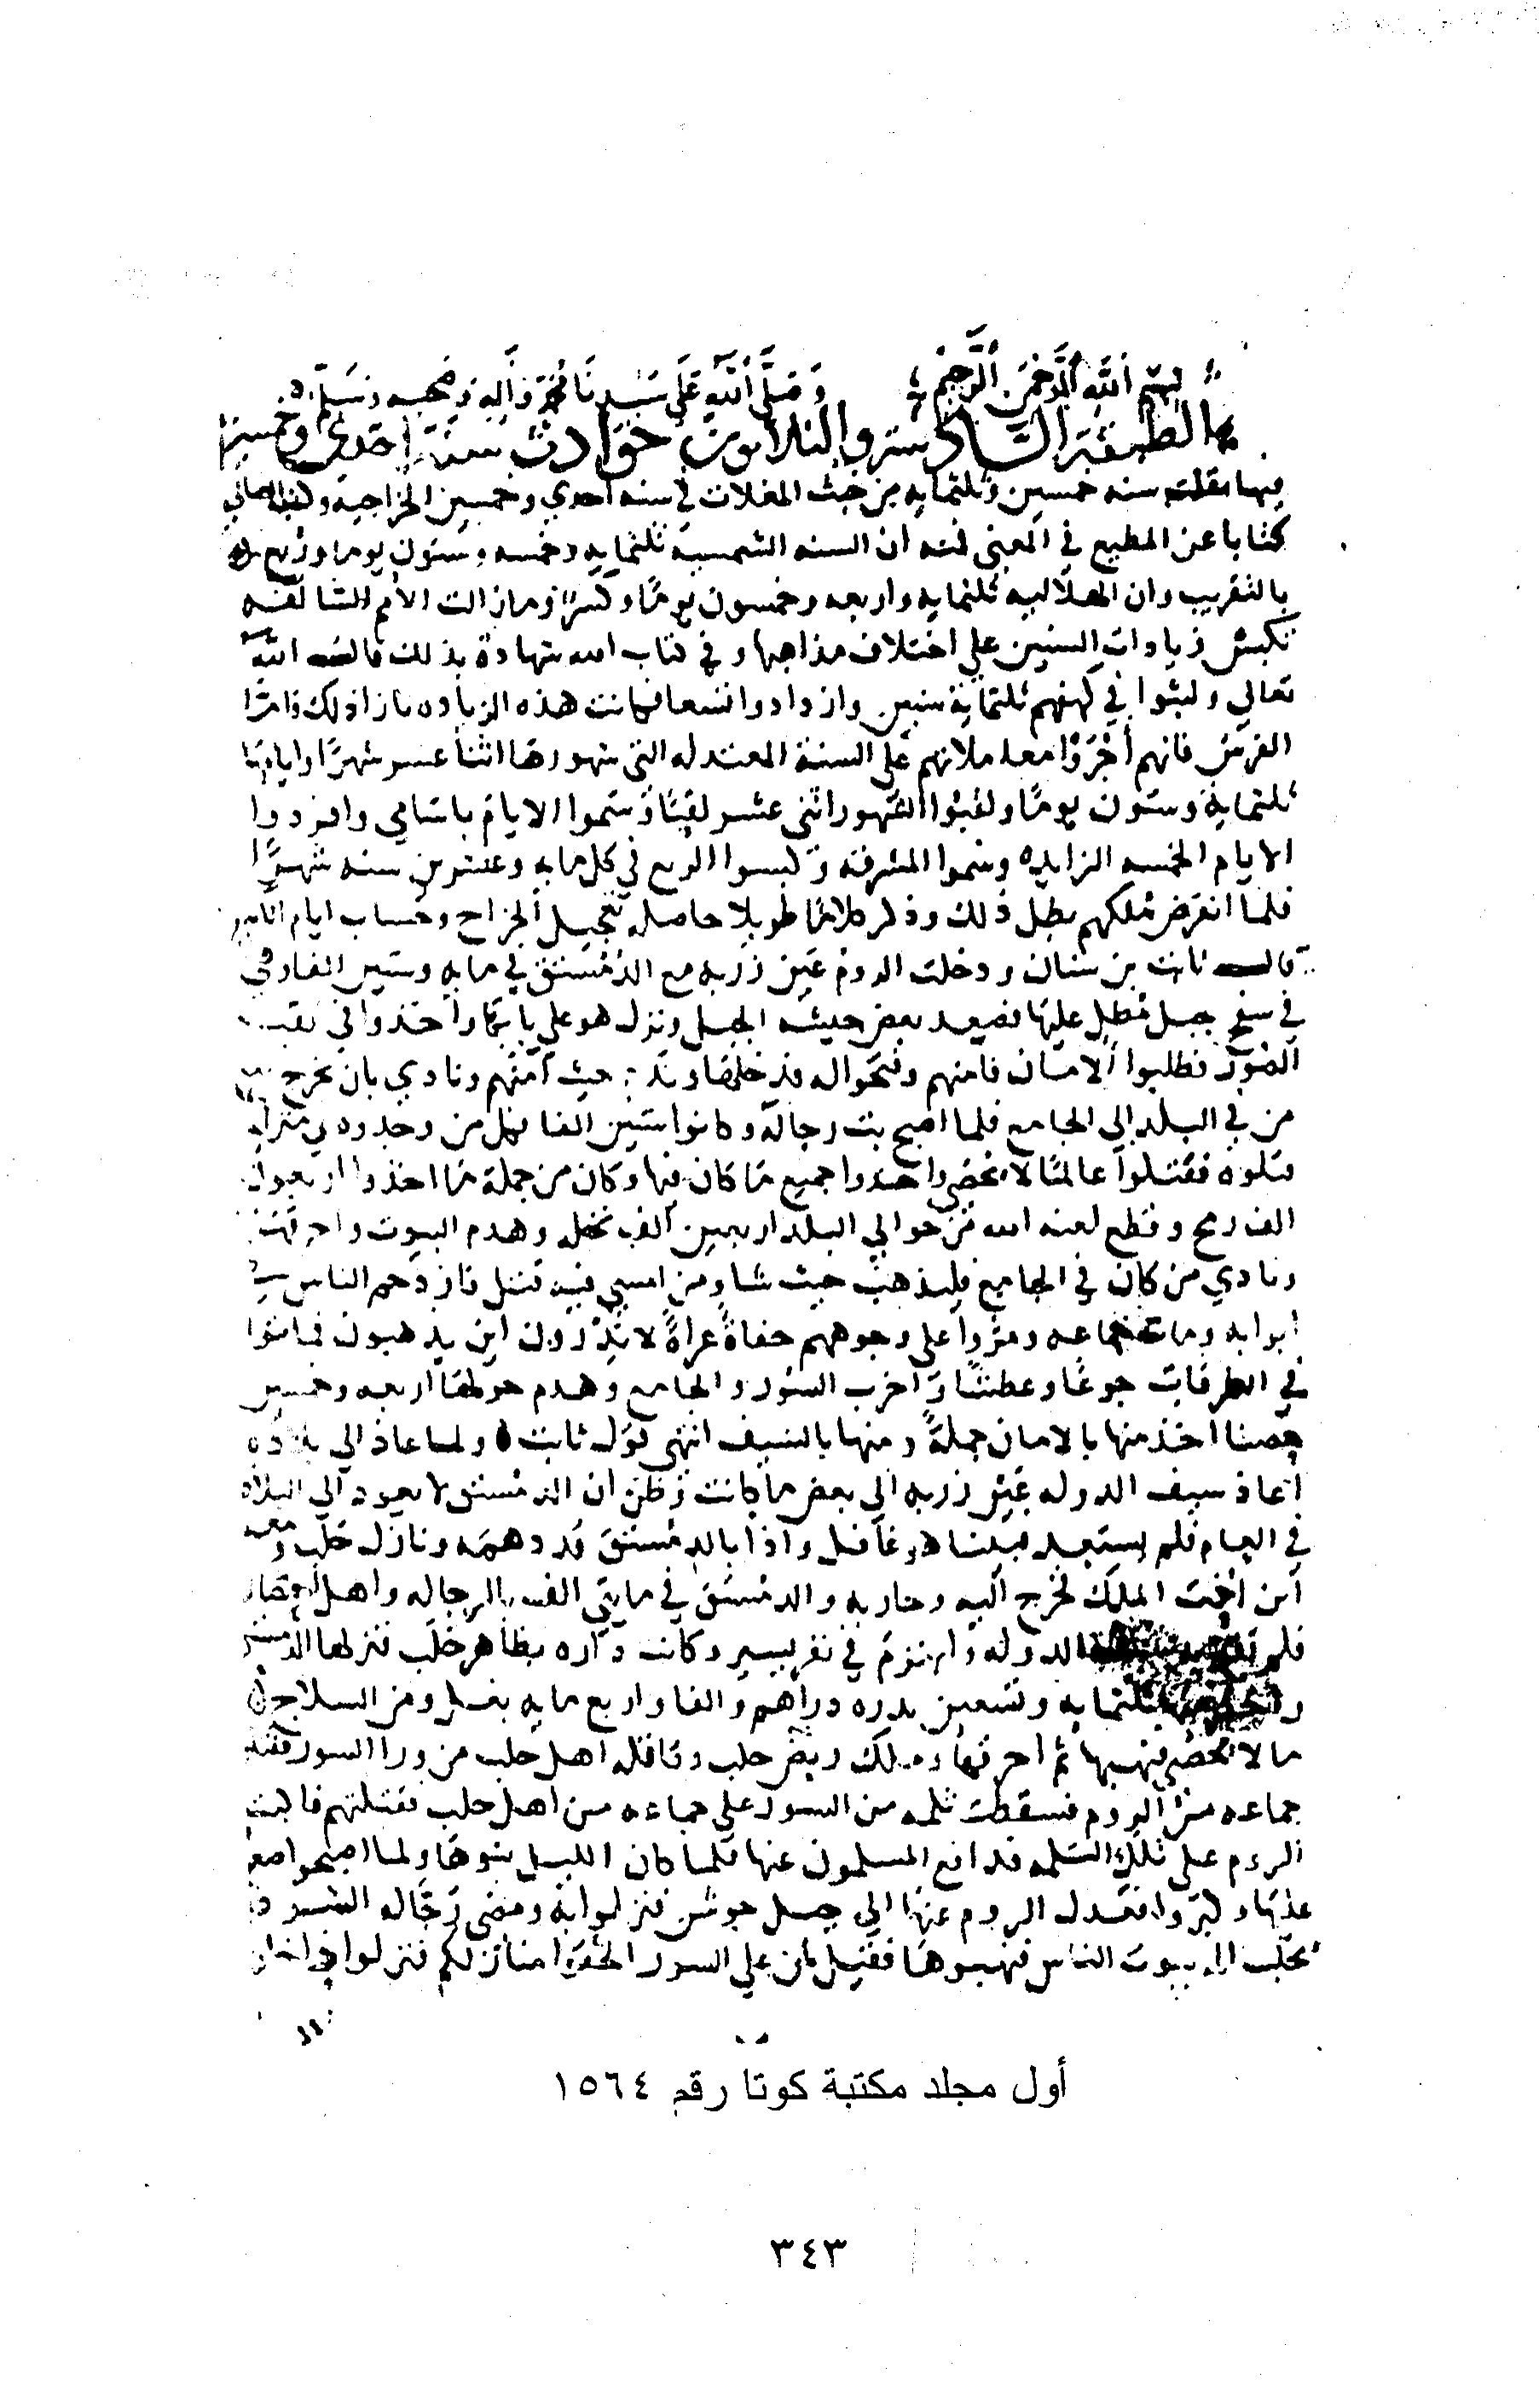 بسم الله الرحمن الرحيم وصلى الله على سيدنا محمد وآله وصحبه وسلم
الطبقة السادسة والثلاثون حوادث سنة احدى وخمسين
فيها نقلت سنه خمسين وثلثمايه من حيث المغلات الى سنه احدي وخمسين الخراجيه وكتب الصابي
كتابا عن المطيع في المعنى فمنه ان السنه الشمسية ثلثمايه وخمسه وستون يوما وربع
بالتقريب وان الهلاليه ثلثمايه واربعه وخمسون يومًا وكسرًا وما زالت الأمم السالفه
تكبس زيادات السنين علي اختلاف مذاهبها وفي كتاب الله شهادة بذلك قال الله
تعالي ولبثوا في كهفهم ثلثماية سنين وازدادوا تسعا فكانت هذه الزياده بازا ذلك فامّا
الفرس فانهم أجْرَوْا معاملاتهم على السنة المعتدله التي شهورها اثنا عسر شهرًا وايامها
ثلثماية وستون يومًا ولقبُوا الشهور اثني عشر لقبًا وسَموا الايام باسَامي وافردوا
الايام الخمسه الزايده وسَموا المسرقه وكبسوا الربع في كل مايه وعشرين سنه شهرًا
فلما انقرض مُلكهم بطل ذلك وذكر كلامًا طويلا حاصله تعجيل الخراج وحساب ايام
قال ثابت بن سنان ودخلت الروم عَين زربه مع الدمُستق في مايه وستين الفا وهي
في سفح جبل مُطل عليها فصعد بعض جيشه الجبل ونزل هو علي بابها واخذوا في نقب
السُور فطلبوا الامان فامنهم وفتحوا له فدخلها وندم حيث أمّنهم ونادي بان يخرج
من في البلد الى الجامع فلما اصبح بث رجاله وكانوا ستين الفا فكل من وجدوه في منزله
قتلوه فقتلوا عالمًا لا يحصى واخذوا جميع ما كان فيها وكان من جملة ما اخذوا اربعون
الف رمح وقطع لعنه الله من حوالي البلد اربعين الف نخله وهدم البيوت واحرقها
ونادي من كان في الجامع فليذهب حيث شا ومن امسى فيه قتل فازدحم الناس في
ابوابه ومات جماعه ومرّوا على وجوههم حفاةً عراةً لا يَدْرون اين يذهبون فماتوا
في الطرقات جوعًا وعطشًا واخرب السُور والجامع وهدم حولها اربعه وخمسين
حصنا اخذ منها بالامان جملةً ومنها بالسيف انتهى قول ثابت ولما عاد الي بلاده
أعاد سيف الدوله عين زربه الى بعض ما كانت وظن ان الدمستق لا يعود الي البلاد
في العام فلم يستعد فبينا هو غافل واذا بالدمُستق قد دهمه ونازل حَلب ومعه
ابن اخت الملك فخرج اليه وحاربه والدمستق في مايتي الف بالرجاله واهل
فلم الدوله وانهزم في نفر يسير وكانت داره بظاهر حلب فنزلها الدمستق
ثلثمايه وتسعين بدره دراهم والفا واربع مايه بغل ومن السلاح
ما لا يحصى فنهبها ثم احرقها وملك ربض حلب وقاتله اهل حلب من ورا السور فقتل
جماعه من الروم فسقطت ثلمه من السور على جماعه من اهل حلب فقتلتهم فاكبت
الروم على تلك الثلمه فدافع المسلمون عنها فلما كان الليل بنوها ولما اصبحوا
عليها وكبّروا فعدل الروم عنها الى جبل جوشن فنزلوا به ومضى رجّاله الشرط
بحلب الى بيوت الناس فنهبوها فقيل لمن علي السور الحقوا منازلكم فنزلوا
أول مجلد مكتبة كوتا رقم ١٥٦٤
٣٤٣